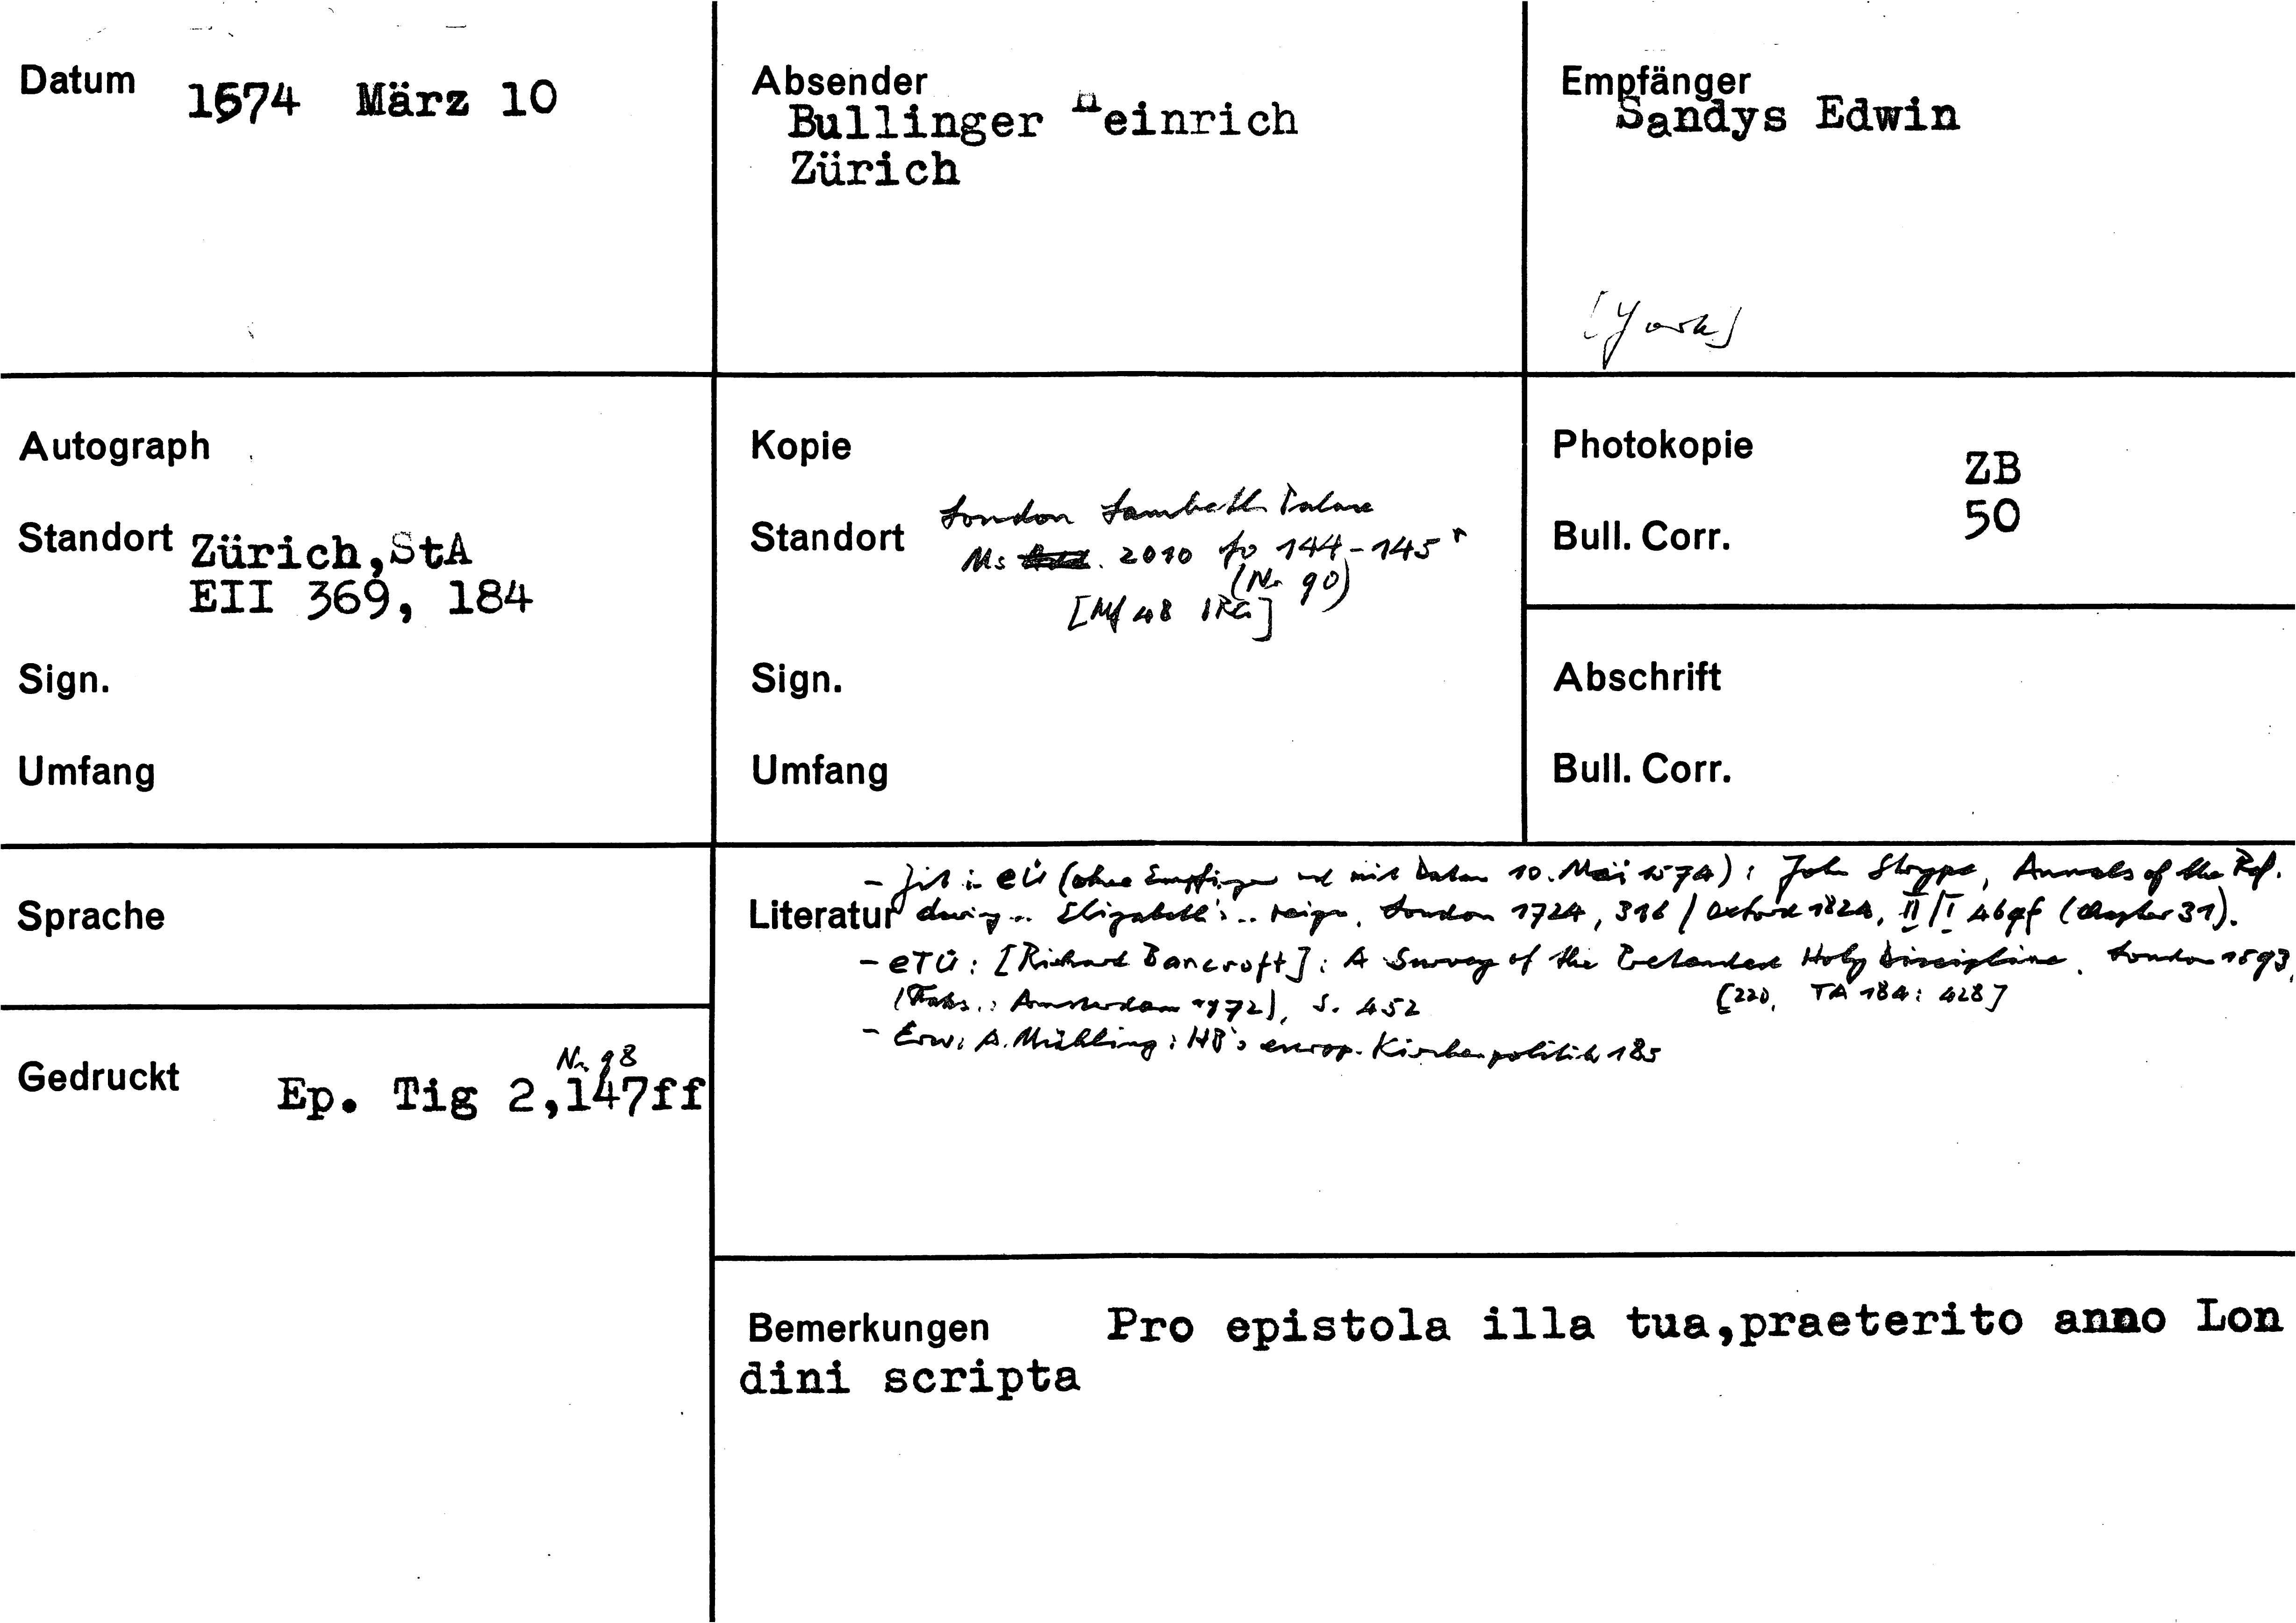 Datum 1574 März 10
Absender
Bullinger Heinrich
Zürich
Empfänger
Sandys Edwin
[York]
Autograph
Standort Zürich,StA
EII 369, 184
Sign.
Umfang
Kopie
Standort London Lambeth Palace
Ms 2010 fo 144-145 r
(Nr. 90)
[Mf 48 IRG]
Sign.
Umfang
Photokopie ZB
Bull. Corr. 50
Abschrift
Bull. Corr.
Sprache
Gedruckt Nr. 98
Ep. Tig 2,147ff
- Zit in eÜ (ohne Empfänger und mit Datum 10. Mai 1574): John Strype, Annals of the Ref.
Literatur during .. Elizabeth's .. reign, London 1724, 316 / Oxford 1824, II/I 469f (Chapter 31).
- eTÜ: [Richard Bancroft]: A Survey of the Pretended Holy Discipline. London 1593,
(Faks.: Amsterdam 1972), S. 452 [220, TA 184: 428]
- Erw: A. Mühling: HB's europ. Kirchenpolitik 185
Bemerkungen Pro epistola illa tua,praeterito anno Lon
dini scripta